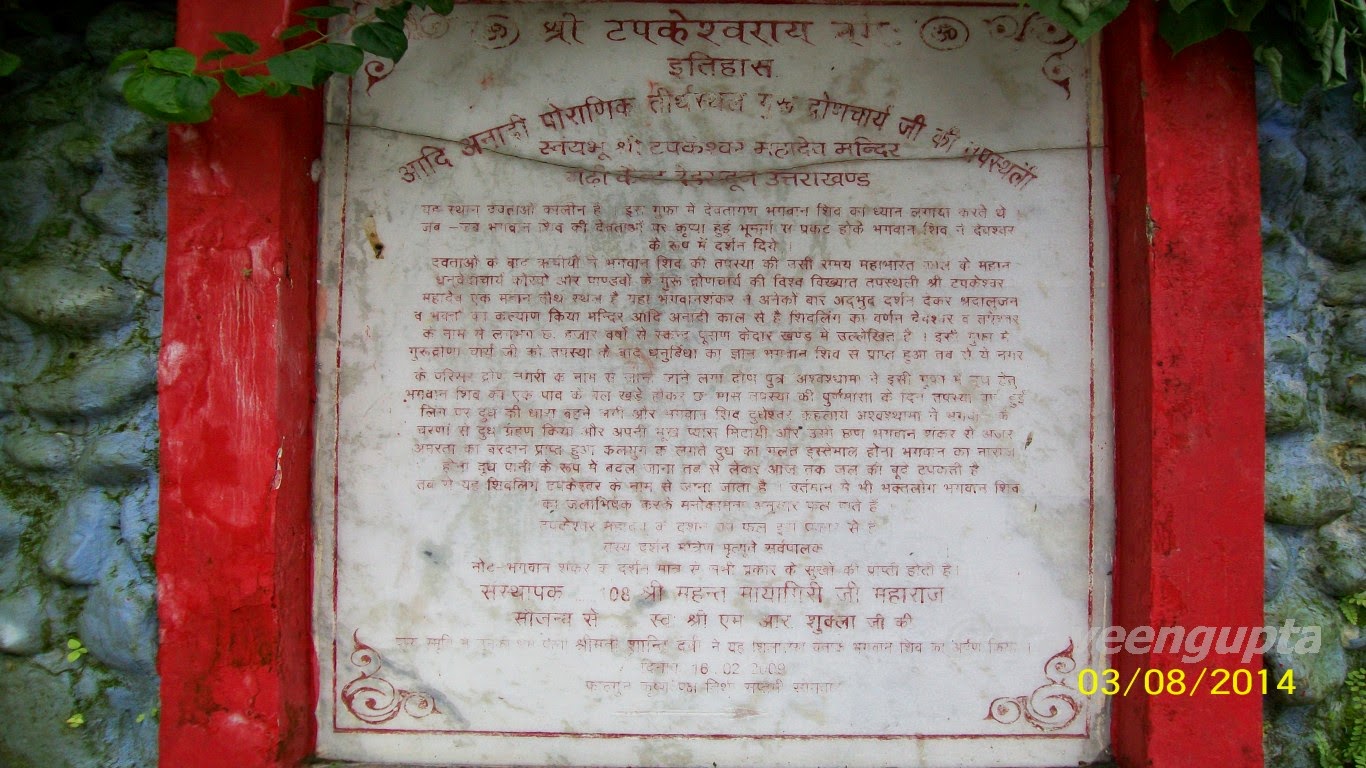 ॐ श्री टपकेश्वराय ॐ
इतिहास
आदि अनादी पोराणिक तीर्थस्थल गुरू द्रोणचार्य जी की तपस्थली
स्वयंभू श्री टपकेश्वर महादेव मन्दिर
गढी कैन्ट देहरादून उत्तराखण्ड
यह स्थान देवताओ कालीन है । इस गुफा में देवतागण भगवान शिव का ध्यान लगाया करते थे
जब भगवान शिव की देवताओ पर कृपा हुई भूमार्ग से प्रकट होके भगवान शिव ने देवेश्वर
के रूप में दर्शन दिये ।
देवताओ के बाद ऋषीयो ने भगवान शिव की तपस्या की उसी समय महाभारत काल के महान
कौरवो और पाण्डवो के गुरू द्रोणचार्य की विश्व विख्यात तपस्थली श्री टपकेश्वर
महादेव एक महान तीर्थ स्थल है यहां भगवानशंकर ने अनेको बार अदभुद दर्शन देकर
व भक्तो का कल्याण किया मन्दिर आदि अनादी काल से है शिवलिंग का वर्णन देवेश्वर व
के नाम से लगभग छः हजार वर्षो से स्कन्द पुराण केदार खण्ड मे उल्लेखित है । इसी गुफा मे
चार्य जी को तपस्या के बाद धनुर्विधा का ज्ञान भगवान शिव से प्राप्त हुआ तब से ये नगर
के परिसर द्रोण नगरी के नाम से जाना जाने लगा द्रोण पुत्र अश्वश्थामा ने इसी गुफा मे दूध हेतु
भगवान शिव की एक पांव के बल खडे होकर छः मास तपस्या की पुर्णमासी के दिन तपस्या हुई
लिंग पर दुध की धारा बहने लगी और भगवान शिव दुधेश्वर कहलाये अश्वश्थामा ने
चरणों से दुध ग्रहण किया और अपनी भूख प्यास मिटायी और भगवान शंकर से अजर
अमरता का वरदान प्राप्त हुआ कलयुग के लगते दुध का गलत इस्तेमाल होना भगवान का नाराज
होना दुध पानी के रूप मे बदल जाना तब से लेकर आज तक जल की बूंद टपकती है
तब से यह शिवलिंग टपकेश्वर के नाम से जाना जाता है । वर्तमान मे भी भक्तलोग भगवान शिव
का जलाभिषेक करके मनोकामना अनुसार फल पाते है
टपकेश्वर महादेव के दर्शन का फल इस प्रकार से है
दर्शन
नोट-भगवान शंकर के दर्शन मात्र से सभी प्रकार के सुखो की प्राप्ती होती है।
संस्थापक 108 श्री महन्त मायागिरी जी महाराज
सौजन्य से स्वः श्री एम आर शुक्ला जी की
श्रीमती शान्ति देवी ने यह भगवान शिव को अर्पण किया ।
दिनांक 16.02.2009
फाल्गुन कृष्ण पक्ष
veengupta
03/08/2014